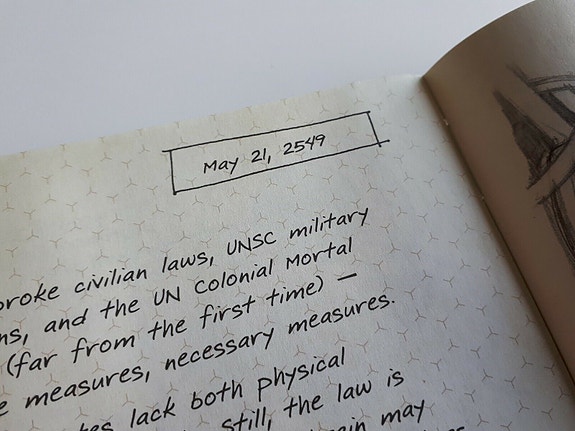 May 21, 2549
broke civilian laws, UNSC military
and the UN Colonial Mortal
(far from the first time) —
measures, necessary measures.
lack both physical
still, the law is
may